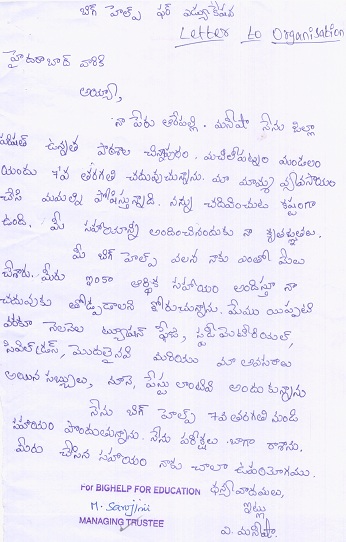 బిగ్ హెల్ప్ ఫర్ ఎడ్యుకేషన్
Letter to Organisation
హైదరాబాద్ వారికి
అయ్యా,
నా పేరు ఆరేపల్లి. మనీషా నేను జిల్లా
పరిషత్ ఉన్నత పాఠశాల చిన్నాపురం. మచిలీపట్నం మండలం
యందు 7వ తరగతి చదువుచున్నాను. మా మామ్మ వ్యవసాయం
చేసి మమల్ని పోషిస్తున్నాది. నన్ను చదివించుట కష్టంగా
ఉంది. మీ సహాయాన్ని అందించినందుకు నా కృతజ్ఞతలు.
మీ బిగ్ హెల్ప్ వలన నాకు ఎంతో మేలు
చేశారు. మీరు ఇంకా ఆర్థిక సహాయం అందిస్తూ నా
చదువుకు తోడ్పడాలని కోరుచున్నాను. మేము యిప్పటి
వరకూ నెలనెల ట్యూషన్ ఫీజు, స్టడీ మెటీరియల్,
సివిల్ డ్రస్, మొదలైనవి మరియు మా అవసరాలు
అయిన సబ్బులు, నూనె, పేస్టు లాంటివి అందుకున్నాను
నేను బిగ్ హెల్ప్ 7వ తరగతి నుండి
సహాయం పొందుతున్నాను. నేను పరీక్షలు బాగా రాశాను.
మీరు చేసిన సహాయం నాకు చాలా ఉపయోగము.
For BIGHELP FOR EDUCATION ధన్యవాదములు,
M. Sarojini ఇట్లు
MANAGING TRUSTEE
ఎ. మనీషా.